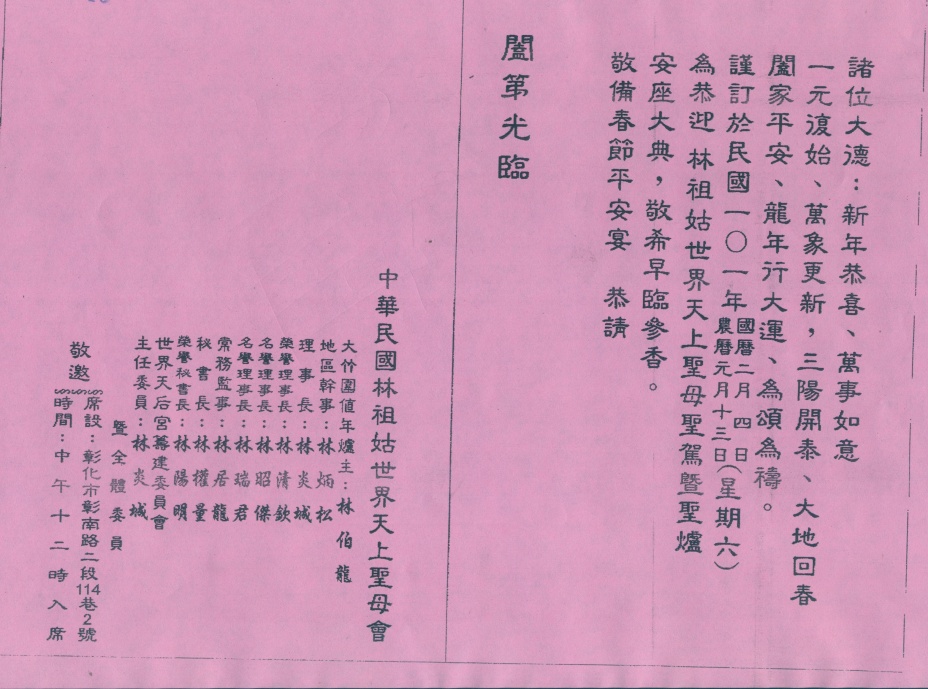 諸位大德：新年恭喜、萬事如意
一元復始、萬象更新，三陽開泰、大地回春
闔家平安、龍年行大運、為頌為禱。
謹訂於民國一〇一年國曆二月四日農曆元月十三日(星期六)
為恭迎 林祖姑世界天上聖母聖駕暨聖爐
安座大典，敬希早臨參香。
敬備春節平安宴 恭請
闔第光臨
中華民國林祖姑世界天上聖母會
大竹圍值年爐主：林伯龍
地區幹事：林炳松
理事長：林炎城
榮譽理事長：林清欽
名譽理事長：林昭傑
名譽理事長：林瑞君
常務監事：林居龍
秘書長：林權量
榮譽秘書長：林陽明
世界天后宮籌建委員會
主任委員：林炎城
暨全體委員
敬邀
席設：彰化市彰南路二段114巷2號
時間：中午十二時入席